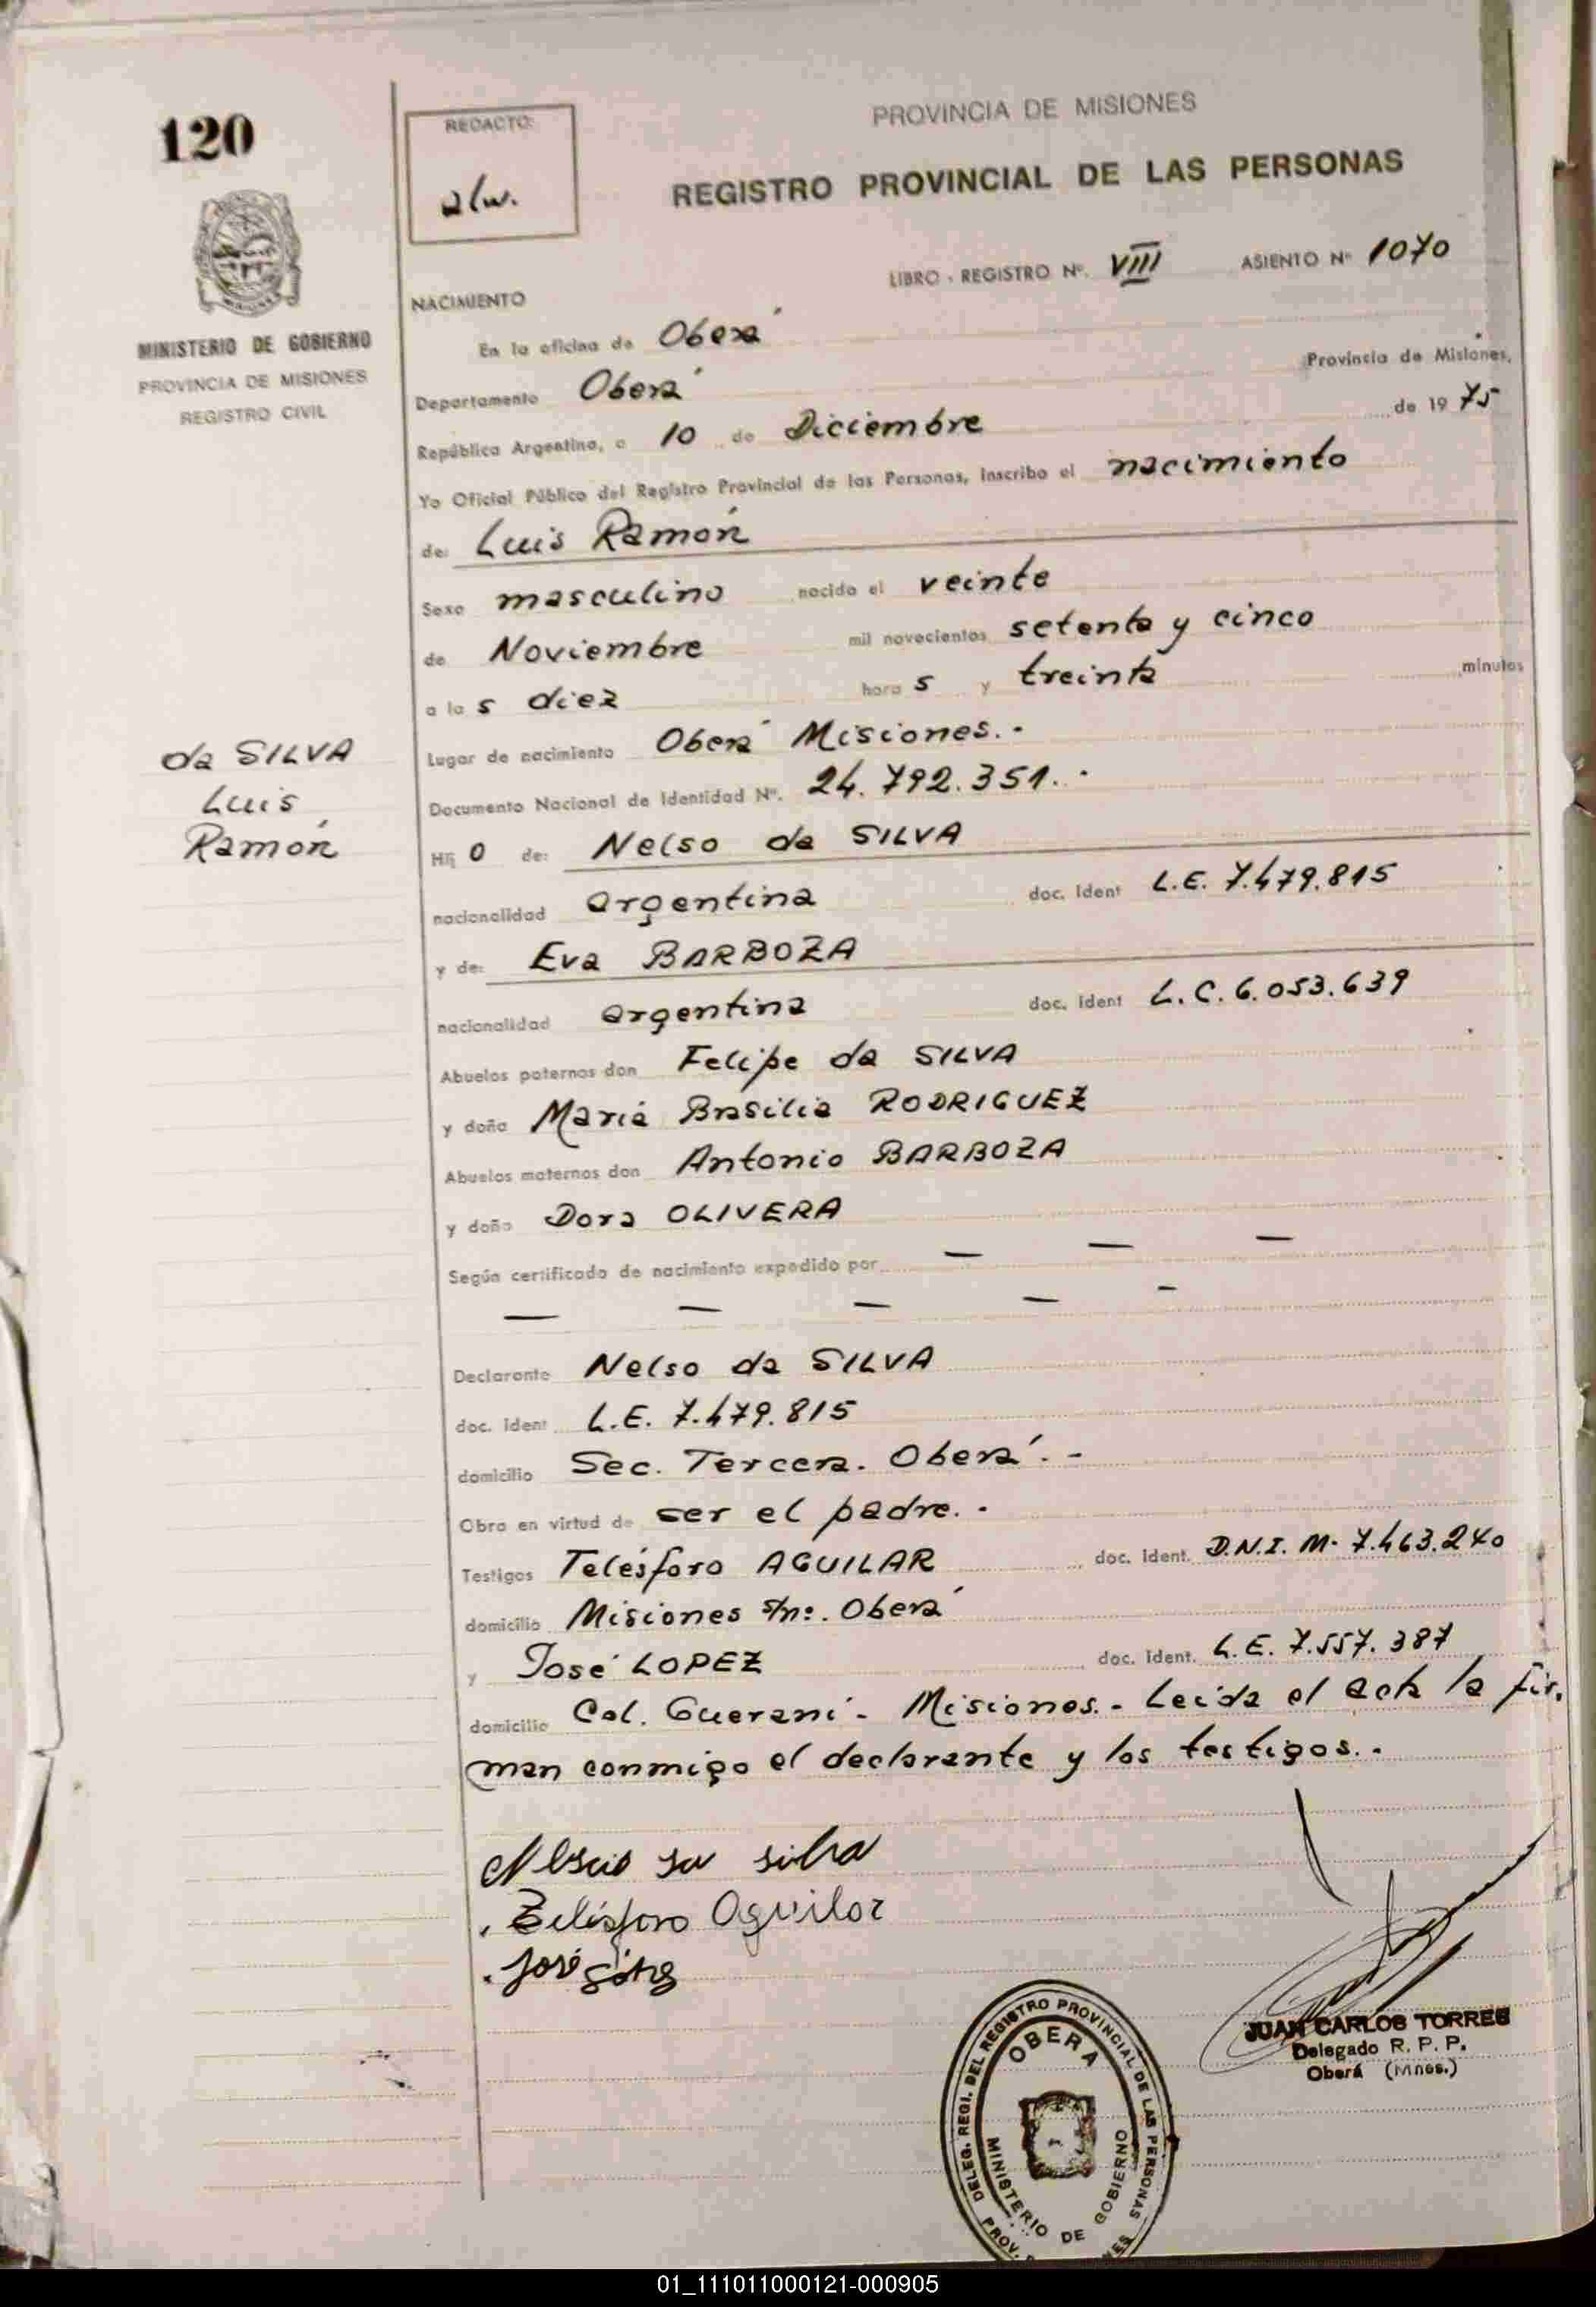 120
REDACTO:
PROVINCIA DE MISIONES
REGISTRO PROVINCIAL DE LAS PERSONAS
LIBRO - REGISTRO Nº. VIII ASIENTO Nº 1070
MINISTERIO DE GOBIERNO
PROVINCIA DE MISIONES
REGISTRO CIVIL
NACIMIENTO
En la oficina de Oberá
Departamento Oberá Provincia de Misiones,
República Argentina, a 10 de Diciembre de 1975
Yo Oficial Público del Registro Provincial de las Personas, inscribo el nacimiento
de: Luis Ramón
Sexo masculino nacido el veinte
de Noviembre mil novecientos setenta y cinco
a la s diez hora s y treinta minutos
Lugar de nacimiento Oberá Misiones.-
Documento Nacional de Identidad Nº. 24.792.351.-
da SILVA
Luis
Ramón
Hij o de: Nelso da SILVA
nacionalidad argentina doc. Ident L.E. 7.479.815
y de: Eva BARBOZA
nacionalidad argentina doc. Ident L.C. 6.053.639
Abuelos paternos don Felipe da SILVA
y doña María Brasilia RODRIGUEZ
Abuelos maternos don Antonio BARBOZA
y doña Dora OLIVERA
Según certificado de nacimiento expedido por — — —
— — — — -
Declarante Nelso da SILVA
doc. ident L.E. 7.479.815
domicilio Sec. Tercera. Oberá.-
Obra en virtud de ser el padre.-
Testigos Telésforo AGUILAR doc. ident. D.N.I. M. 7.463.240
domicilio Misiones s/nº. Oberá
y José LOPEZ doc. ident. L.E. 7.557.387
domicilio Col. Guaraní - Misiones.- Leída el acta la fir-
man conmigo el declarante y los testigos.-
silva
Telésforo Aguilar
José
JUAN CARLOS TORRES
Delegado R. P. P.
Oberá (Mnes.)
DELEG. REGI. DEL REGISTRO PROVINCIAL DE LAS PERSONAS
OBERA
MINISTERIO DE GOBIERNO
PROV.
01_111011000121-000905